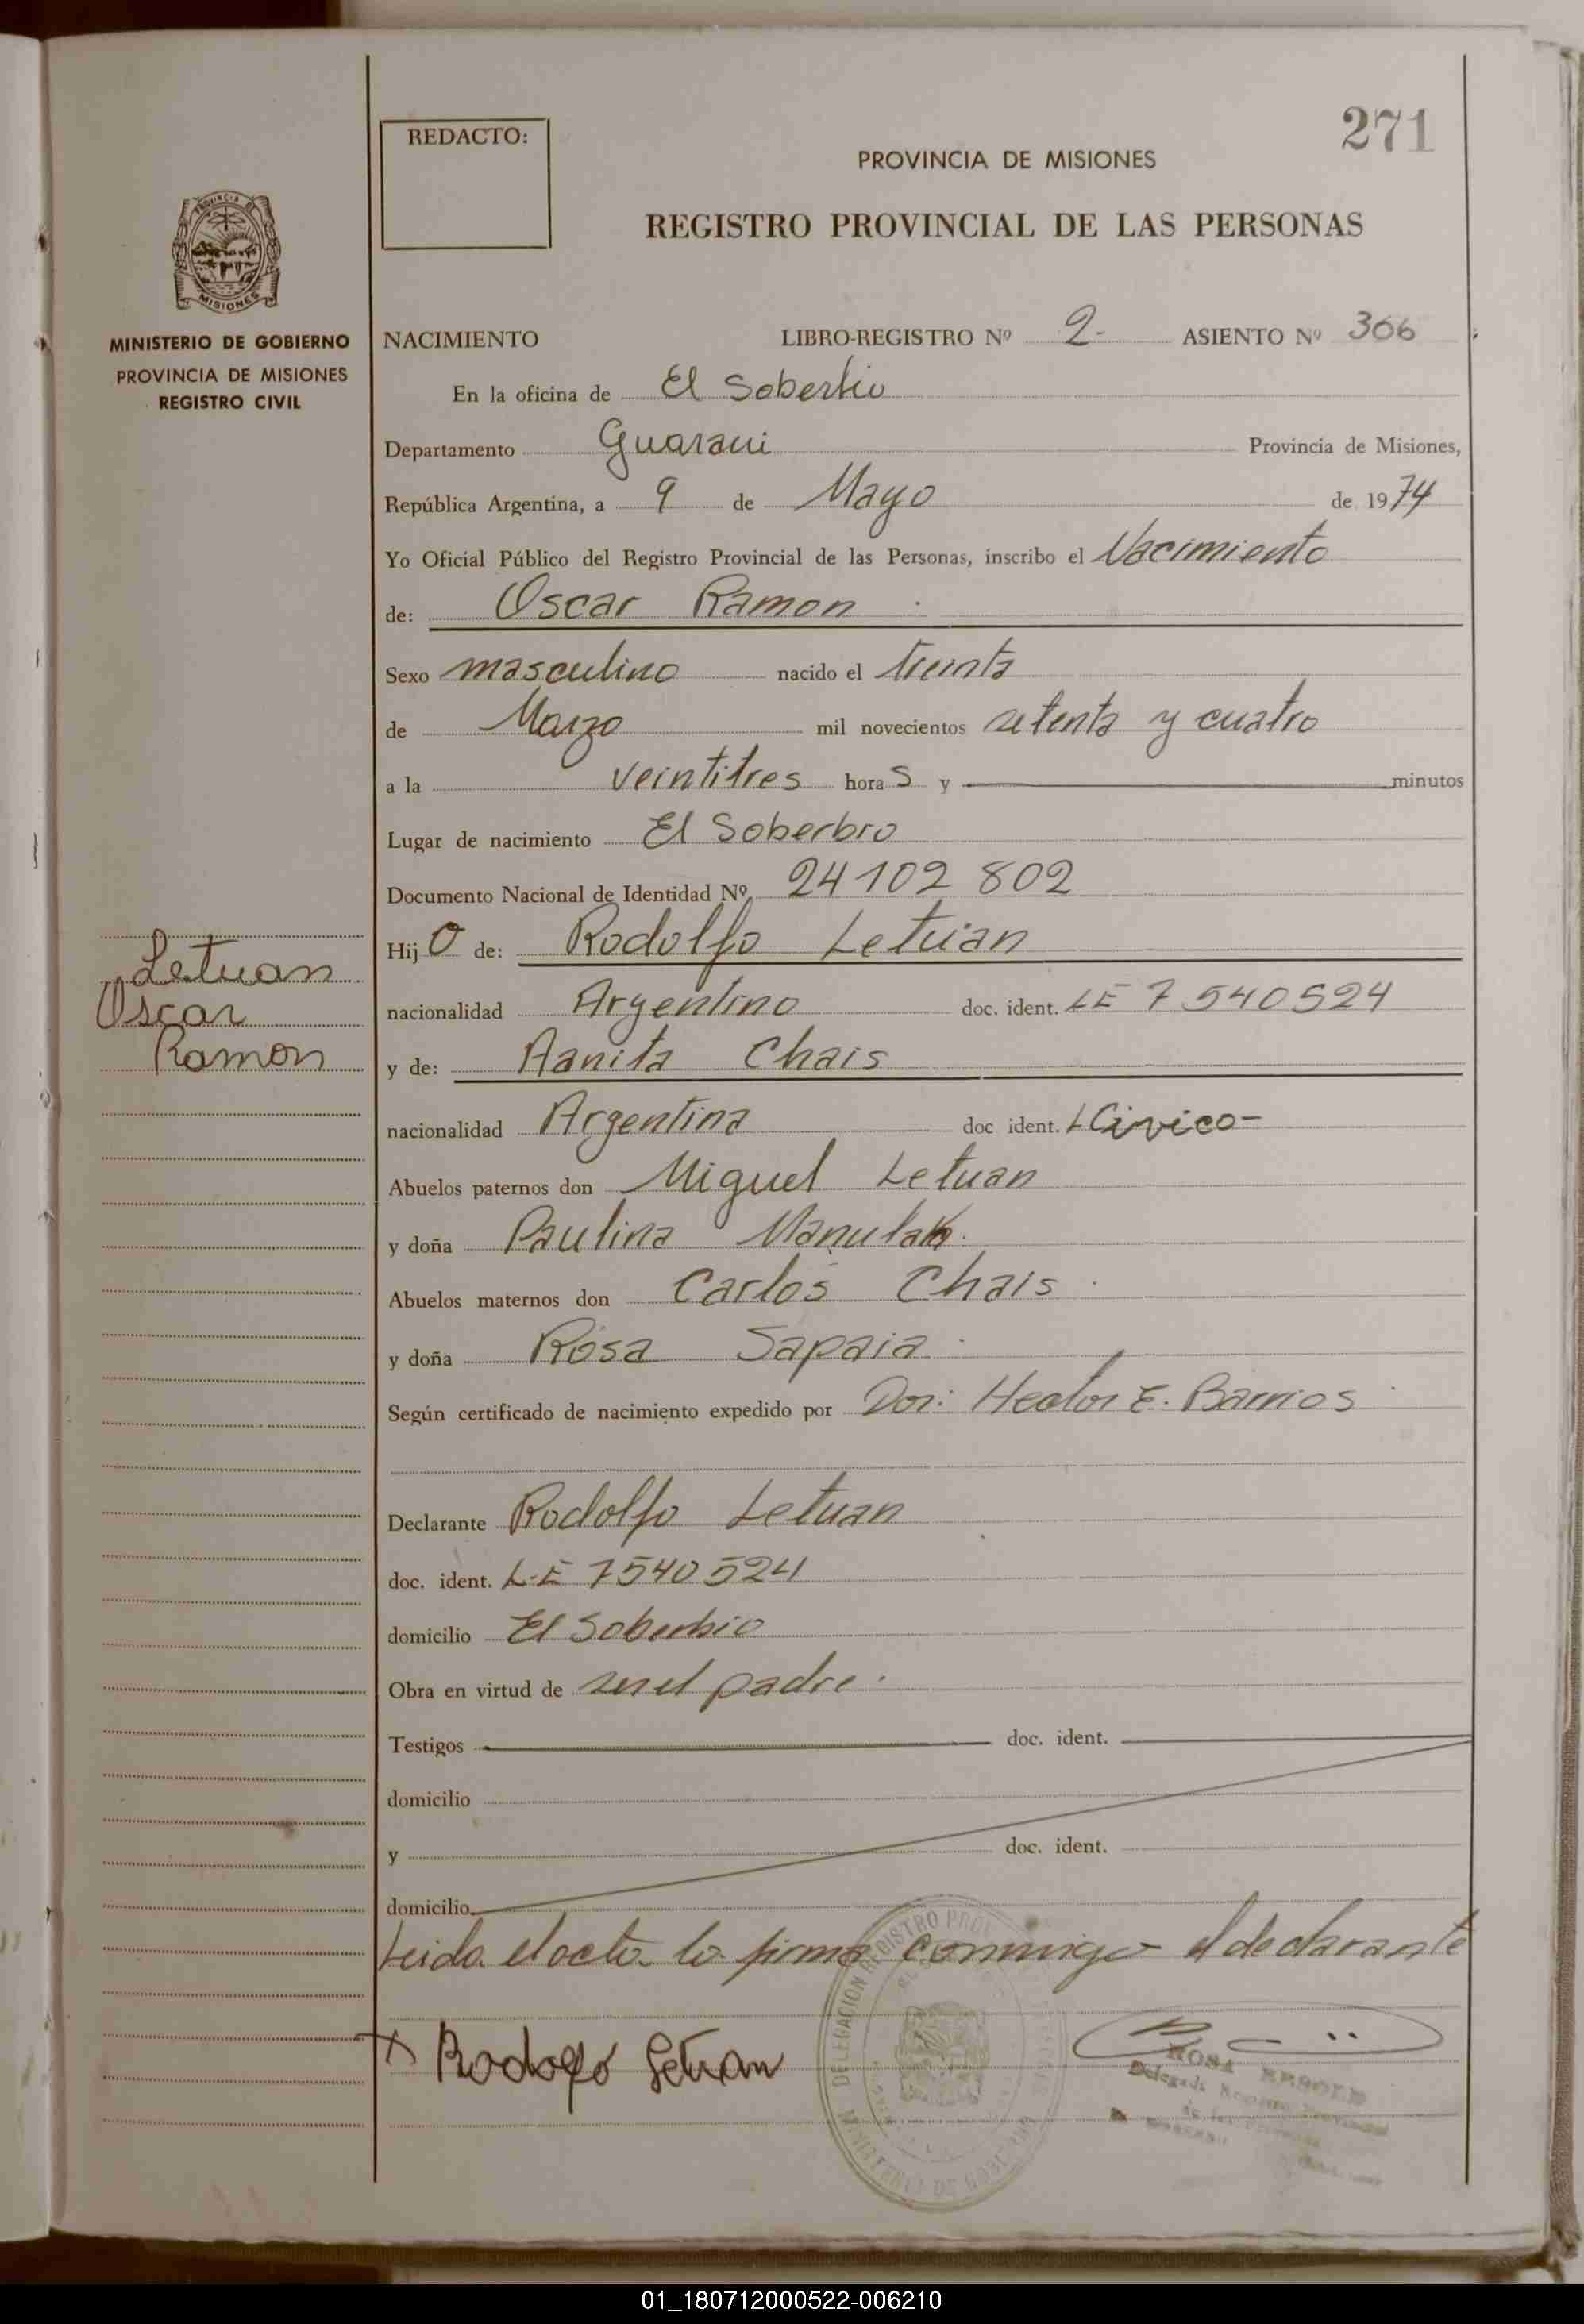 271
REDACTO:
PROVINCIA DE MISIONES
REGISTRO PROVINCIAL DE LAS PERSONAS
PROVINCIA DE
MISIONES
MINISTERIO DE GOBIERNO
PROVINCIA DE MISIONES
REGISTRO CIVIL
NACIMIENTO LIBRO-REGISTRO Nº 2- ASIENTO Nº 306
En la oficina de El Soberbio
Departamento Guarani Provincia de Misiones,
República Argentina, a 9 de Mayo de 1974
Yo Oficial Público del Registro Provincial de las Personas, inscribo el Nacimiento
de: Oscar Ramon
Sexo masculino nacido el treinta
de Marzo mil novecientos setenta y cuatro
a la veintitres horas y minutos
Lugar de nacimiento El Soberbio
Documento Nacional de Identidad Nº 24102 802
Hijo de: Rodolfo Letuan
Letuan
Oscar
Ramon
nacionalidad Argentino doc. ident. LE 7 540524
y de: Aanita Chais
nacionalidad Argentina doc ident. L Civico-
Abuelos paternos don Miguel Letuan
y doña Paulina Manulak.
Abuelos maternos don Carlos Chais
y doña Rosa Sapaia
Según certificado de nacimiento expedido por Dor: Hector E. Barrios
Declarante Rodolfo Letuan
doc. ident. L.E 7540524
domicilio El Soberbio
Obra en virtud de ser el padre.
Testigos doc. ident.
domicilio
y doc. ident.
domicilio
Leida el acta la firma conmigo el declarante
x Rodolfo Letuan
DELEGACION REGISTRO
ROSA
Delegada
01_180712000522-006210